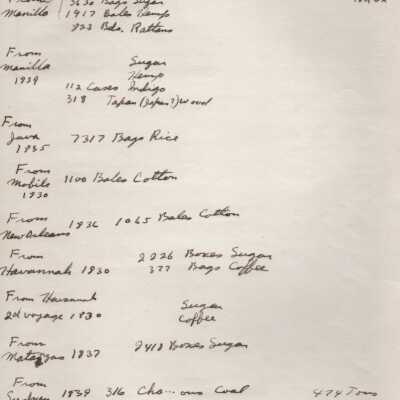 From 3630 Bags Sugar
Manilla 1917 Bales Hemp
223 Bdo. Rattans
From
Manilla Sugar
1839 Hemp
112 Cases Indigo
318 Tapan (Japan?) Wood
From
Java 7317 Bags Rice
1835
From
Mobile 1100 Bales Cotton
1830
From 1836 1065 Bales Cotton
New Orleans
From 2226 Boxes Sugar
Havannah 1830 377 Bags Coffee
From Havannah Sugar
2d voyage 1830 Coffee
From
Matanzas 1837 2418 Boxes Sugar
From
1839 316 Cha... ous Coal 474 Tons